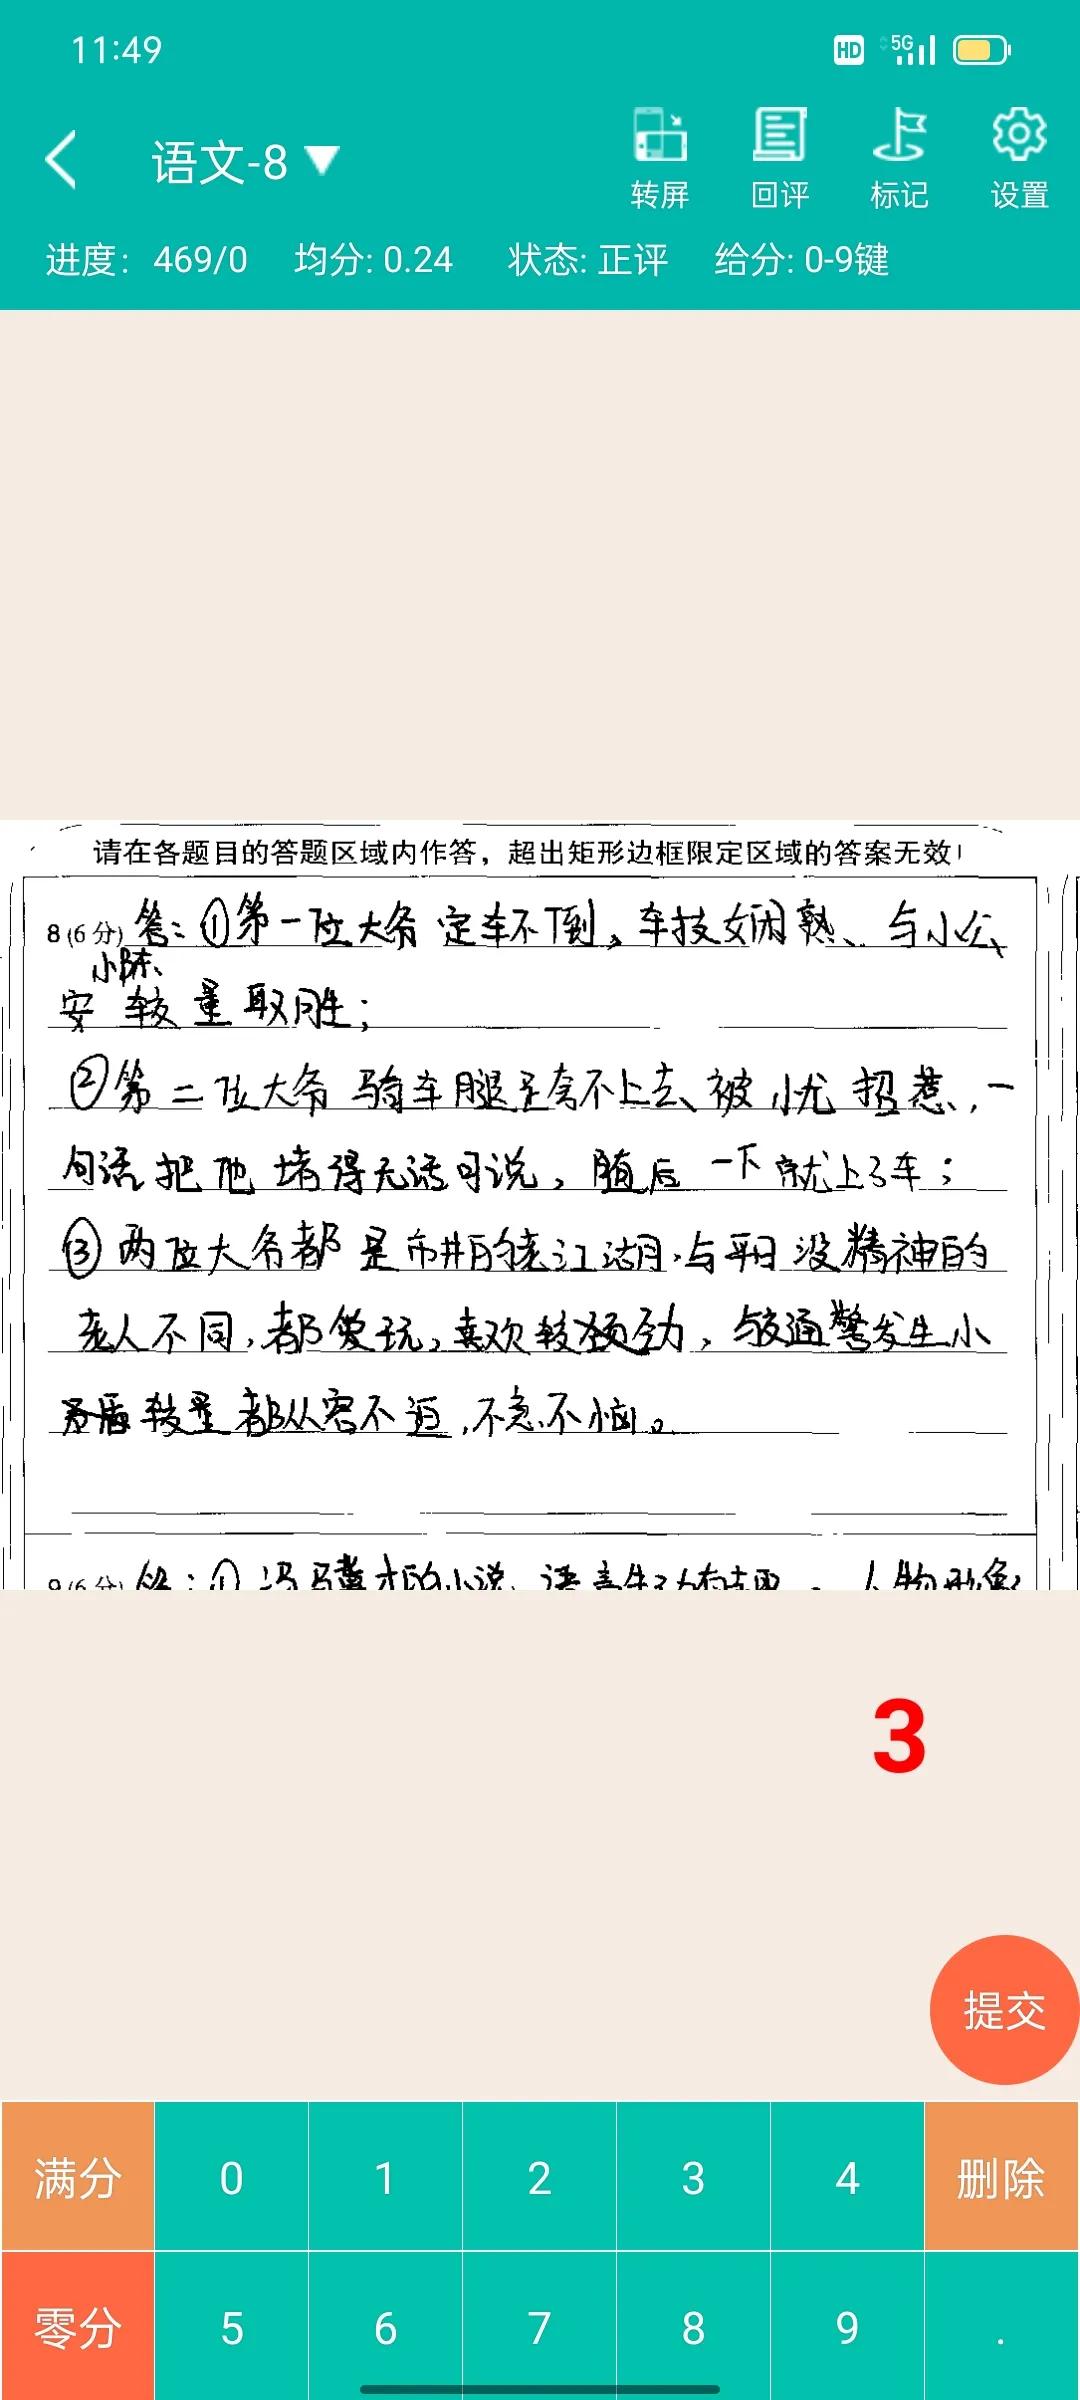 11:49
HD 5G
语文-8
转屏 回评 标记 设置
进度: 469/0 均分: 0.24 状态: 正评 给分: 0-9键
请在各题目的答题区域内作答，超出矩形边框限定区域的答案无效!
8 (6 分) 答：①第一位大爷定车不倒，车技娴熟、与小公
小陈
安 较量取胜；
②第二位大爷骑车腿是夸不上去、被小尤招惹，一
句话把他堵得无话可说，随后一下就上了车；
③两位大爷都是市井的老江湖，与平日没精神的
老人不同，都爱玩，喜欢较颈劲，与交通警发生小
矛盾较量都从容不迫，不急不恼。
9 (6 分) 答：① 冯骥才的小说，语言生动有趣，人物形象
3
提交
满分 0 1 2 3 4 删除
零分 5 6 7 8 9 .